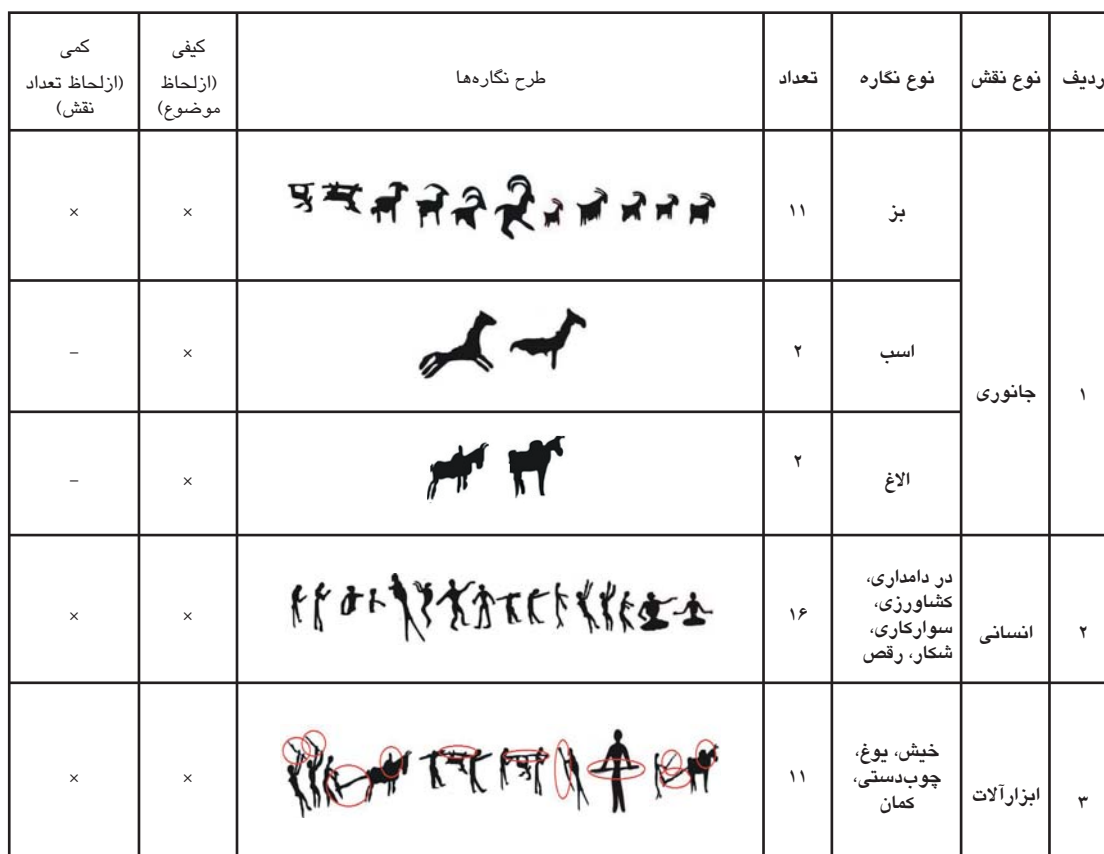 ردیف
نوع نقش
نوع نگاره
تعداد
طرح نگاره‌ها
کیفی
(ازلحاظ
موضوع)
کمی
(ازلحاظ تعداد
نقش)
۱
جانوری
بز
۱۱
×
×
اسب
۲
×
–
الاغ
۲
×
–
۲
انسانی
در دامداری،
کشاورزی،
سوارکاری،
شکار، رقص
۱۶
×
×
۳
ابزارآلات
خیش، یوغ،
چوب‌دستی،
کمان
۱۱
×
×